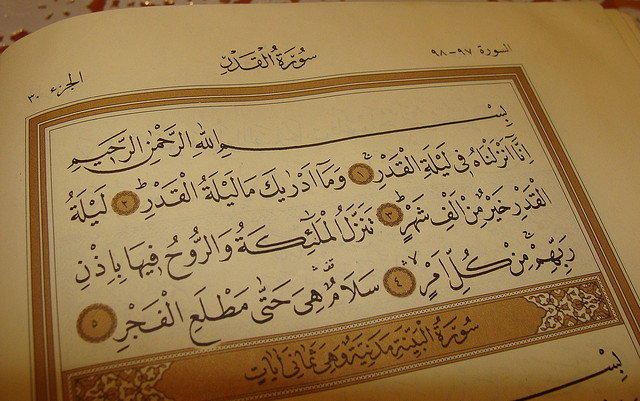 السورة ٩٧-٩٨ سُورَةُ الْقَدْرِ الجزء ٣٠
بِسْمِ اللّٰهِ الرَّحْمٰنِ الرَّحِيمِ
اِنَّٓا اَنْزَلْنَاهُ فِى لَيْلَةِ الْقَدْرِۚ ١ وَمَٓا اَدْرٰيكَ مَا لَيْلَةُ الْقَدْرِۜ ٢ لَيْلَةُ
الْقَدْرِ خَيْرٌ مِنْ اَلْفِ شَهْرٍۜ ٣ تَنَزَّلُ الْمَلٰٓئِكَةُ وَالرُّوحُ فِيهَا بِاِذْنِ
رَبِّهِمْۚ مِنْ كُلِّ اَمْرٍۙ ٤ سَلَامٌ۠ هِىَ حَتّٰى مَطْلَعِ الْفَجْرِ ٥
سُورَةُ الْبَيِّنَةِ مَدَنِيَّةٌ وَهِىَ ثَمَانِى اٰيَاتٍ
بِسْ